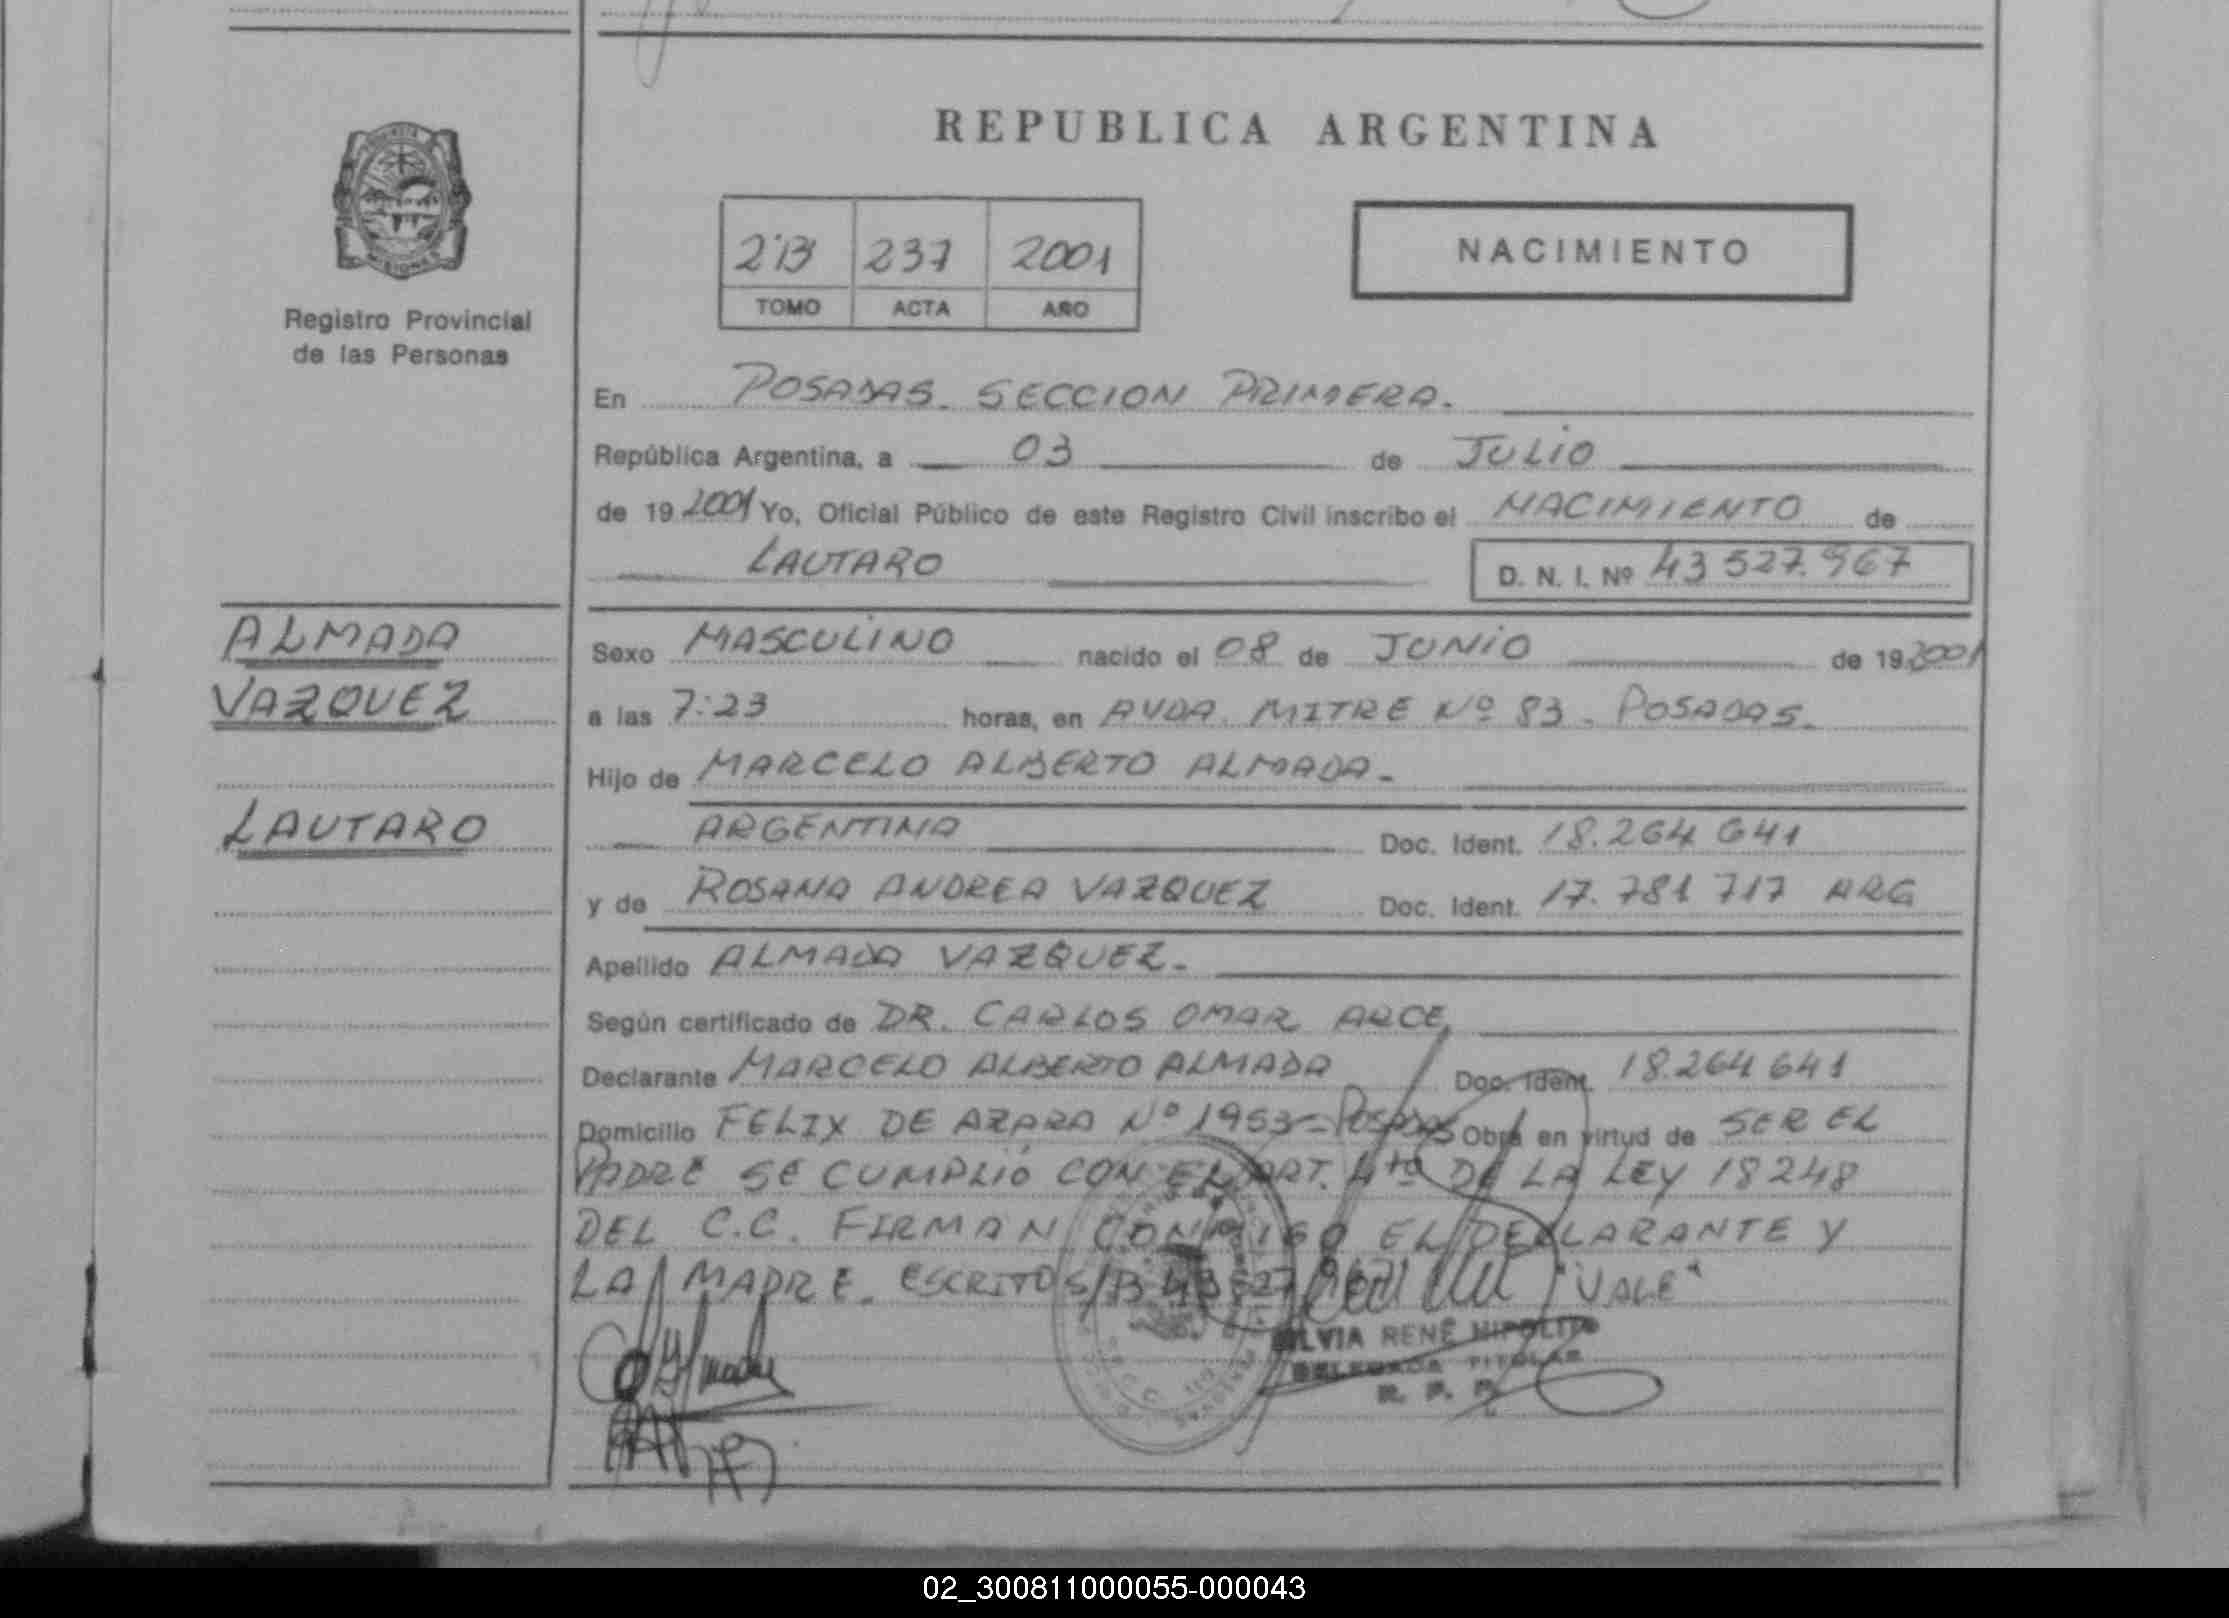 REPUBLICA ARGENTINA
PROVINCIA
MISIONES
Registro Provincial
de las Personas
2°B 237 2001
TOMO ACTA AÑO
NACIMIENTO
En POSADAS. SECCION PRIMERA.
República Argentina, a 03 de JULIO
de 19 2001 Yo, Oficial Público de este Registro Civil inscribo el NACIMIENTO de
LAUTARO D. N. I. Nº 43 527.967
ALMADA
VAZQUEZ
LAUTARO
Sexo MASCULINO nacido el 08 de JUNIO de 19 2001
a las 7:23 horas, en AVDA. MITRE Nº 83. POSADAS.
Hijo de MARCELO ALBERTO ALMADA-
ARGENTINA Doc. Ident. 18.264 641
y de ROSANA ANDREA VAZQUEZ Doc. Ident. 17.781 717 ARG
Apellido ALMADA VAZQUEZ-
Según certificado de DR. CARLOS OMAR ARCE
Declarante MARCELO ALBERTO ALMADA Doc. Ident. 18.264 641
Domicilio FELIX DE AZARA Nº 1953- POSADAS Obra en virtud de SER EL
PADRE SE CUMPLIÓ CON EL ART. 4to DE LA LEY 18248
DEL C.C. FIRMAN CONMIGO EL DECLARANTE Y
LA MADRE. ESCRITO S/B 43 527 967 "VALE"
SILVIA RENÉ HIPOLITO
DELEGADA TITULAR
R. P. P.
02_300811000055-000043